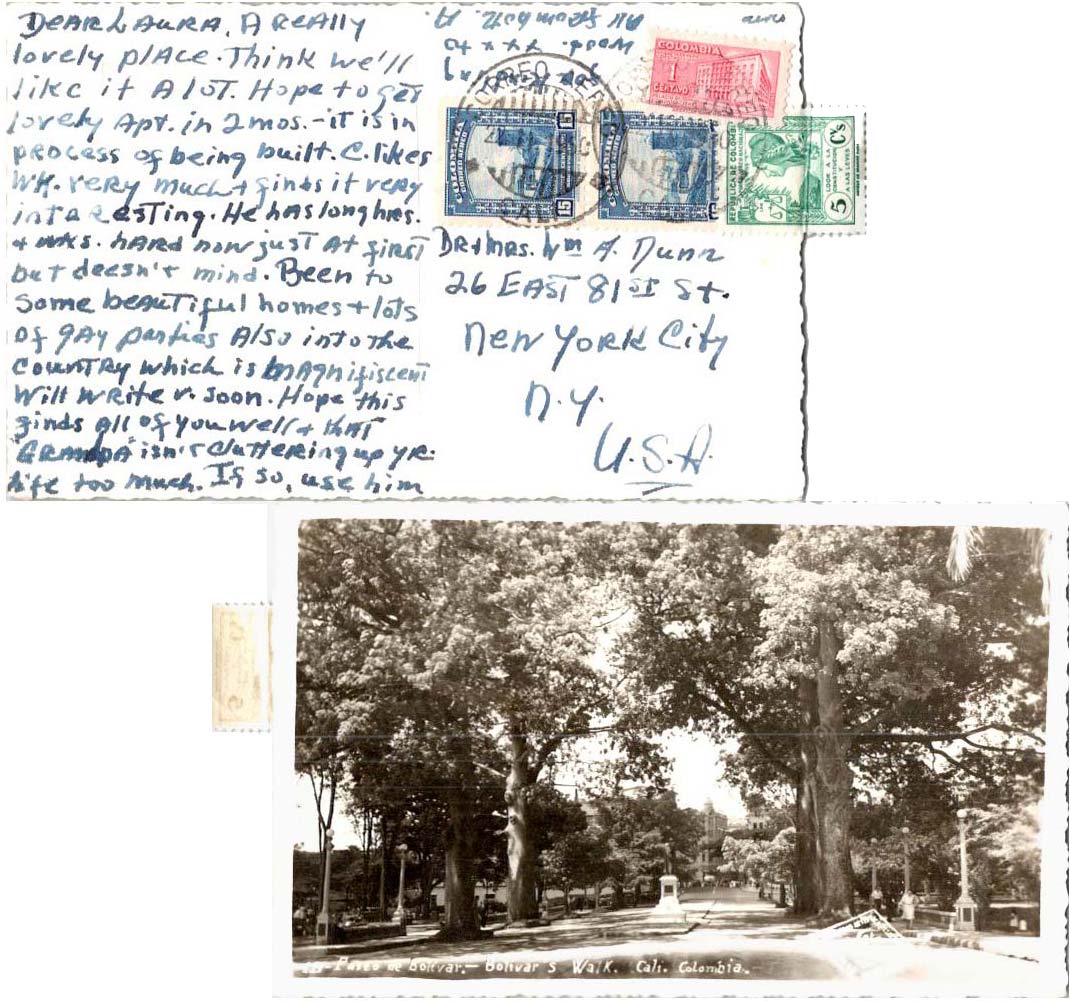 DEAR LAURA, A REALLY
lovely place. Think we'll
like it A lot. Hope to get
lovely Apt. in 2 mos. - it is in
process of being built. C. likes
WK. very much + finds it very
interesting. He has long hrs.
+ wks. hard now just at first
but doesn't mind. Been to
some beautiful homes + lots
of gay parties Also into the
COUNTRY which is magnifiscent
Will write v. soon. Hope this
finds all of you well + that
"GRANDPA" isn't cluttering up yr.
life too much. If so, use him
aereo
COLOMBIA
1
CENTAVO
CORREO AEREO
CALI
COLOMBIA
CORREO AEREO
15
15
REPUBLICA DE COLOMBIA
LOOR A LA
CONSTITUCION Y
A LAS LEYES
5 C's
DR + MRS. Wm A. Dunn
26 EAST 81ST St.
New York City
N.Y.
U.S.A.
Paseo de Bolivar. - Bolivar s Walk. Cali. Colombia.